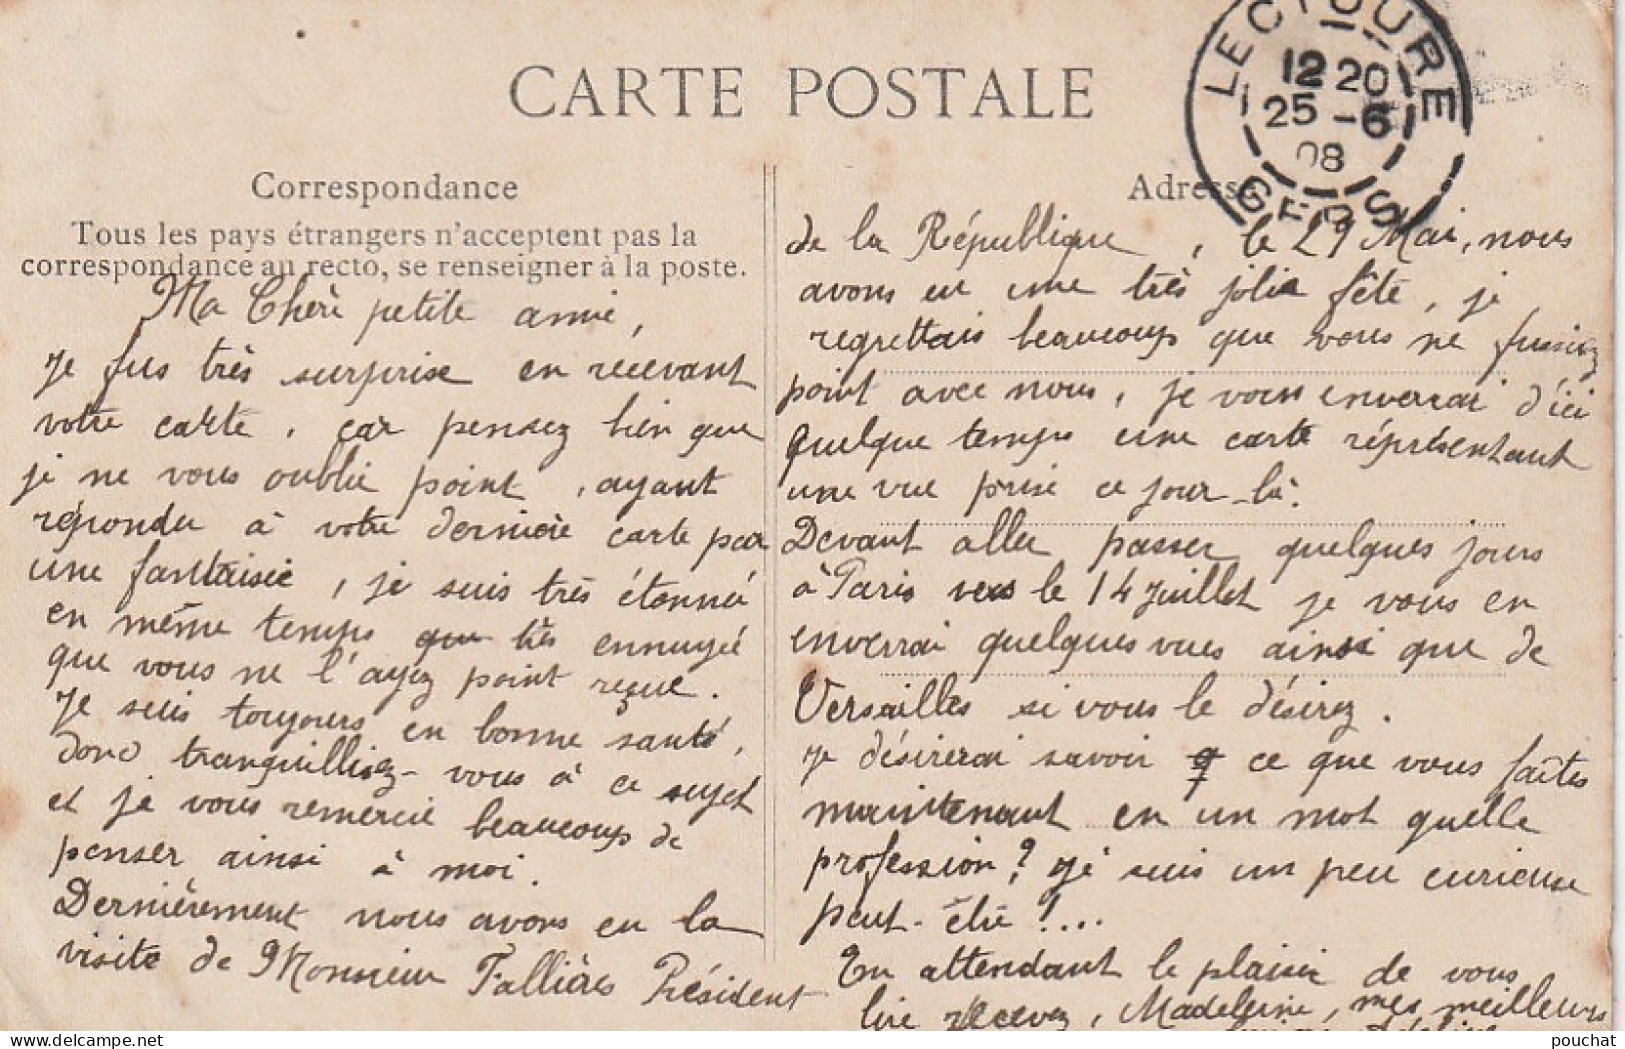 CARTE POSTALE
LECTOURE
12 20
25 -6
08
GERS
Correspondance
Tous les pays étrangers n'acceptent pas la
correspondance au recto, se renseigner à la poste.
Adresse
Ma Chère petite amie,
Je fus très surprise en recevant
votre carte, car pensez bien que
je ne vous oublie point, ayant
répondu à votre dernière carte par
une fantaisie, je suis très étonnée
en même temps que très ennuyée
que vous ne l'ayez point reçue.
Je suis toujours en bonne santé,
donc tranquillisez-vous à ce sujet
et je vous remercie beaucoup de
penser ainsi à moi.
Dernièrement nous avons eu la
visite de Monsieur Fallières Président
de la République, le 29 Mai, nous
avons eu une très jolie fête, je
regrettais beaucoup que vous ne fussiez
point avec nous, je vous enverrai d'ici
quelque temps une carte réprésentant
une vue prise ce jour-là.
Devant aller passer quelques jours
à Paris vers le 14 Juillet je vous en
enverrai quelques vues ainsi que de
Versailles si vous le désirez.
Je désirerai savoir q ce que vous faîtes
maintenant en un mot quelle
profession? Je suis un peu curieuse
peut-être!...
En attendant le plaisir de vous
lire recevez, Madeleine, mes meilleurs
delcampe.net
pouchat